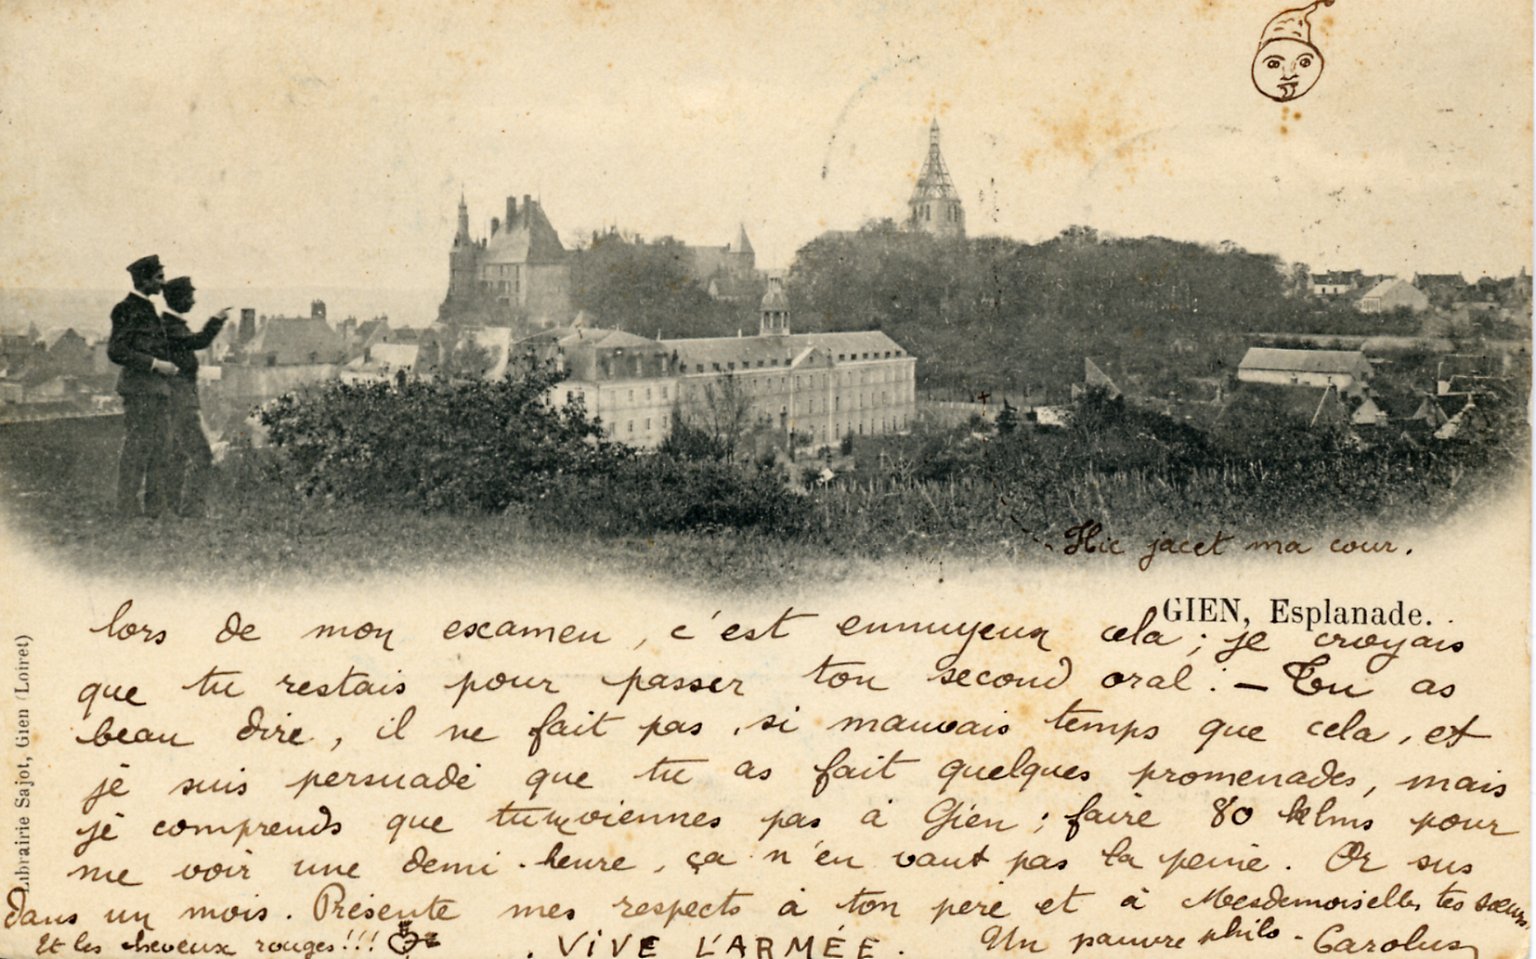 Hic jacet ma cour.
GIEN, Esplanade.
lors de mon examen, c'est ennuyeux cela ; je croyais
que tu restais pour passer ton second oral. — Tu as
beau dire, il ne fait pas si mauvais temps que cela, et
je suis persuadé que tu as fait quelques promenades, mais
je comprends que tu ne viennes pas à Gien ; faire 80 klms pour
me voir une demi-heure, ça n'en vaut pas la peine. Or sus
dans un mois. Présente mes respects à ton père et à Mesdemoiselles tes sœurs
Et les cheveux rouges!!!
. VIVE L'ARMÉE.
Un pauvre philo - Carolus
Librairie Sajot, Gien (Loiret)